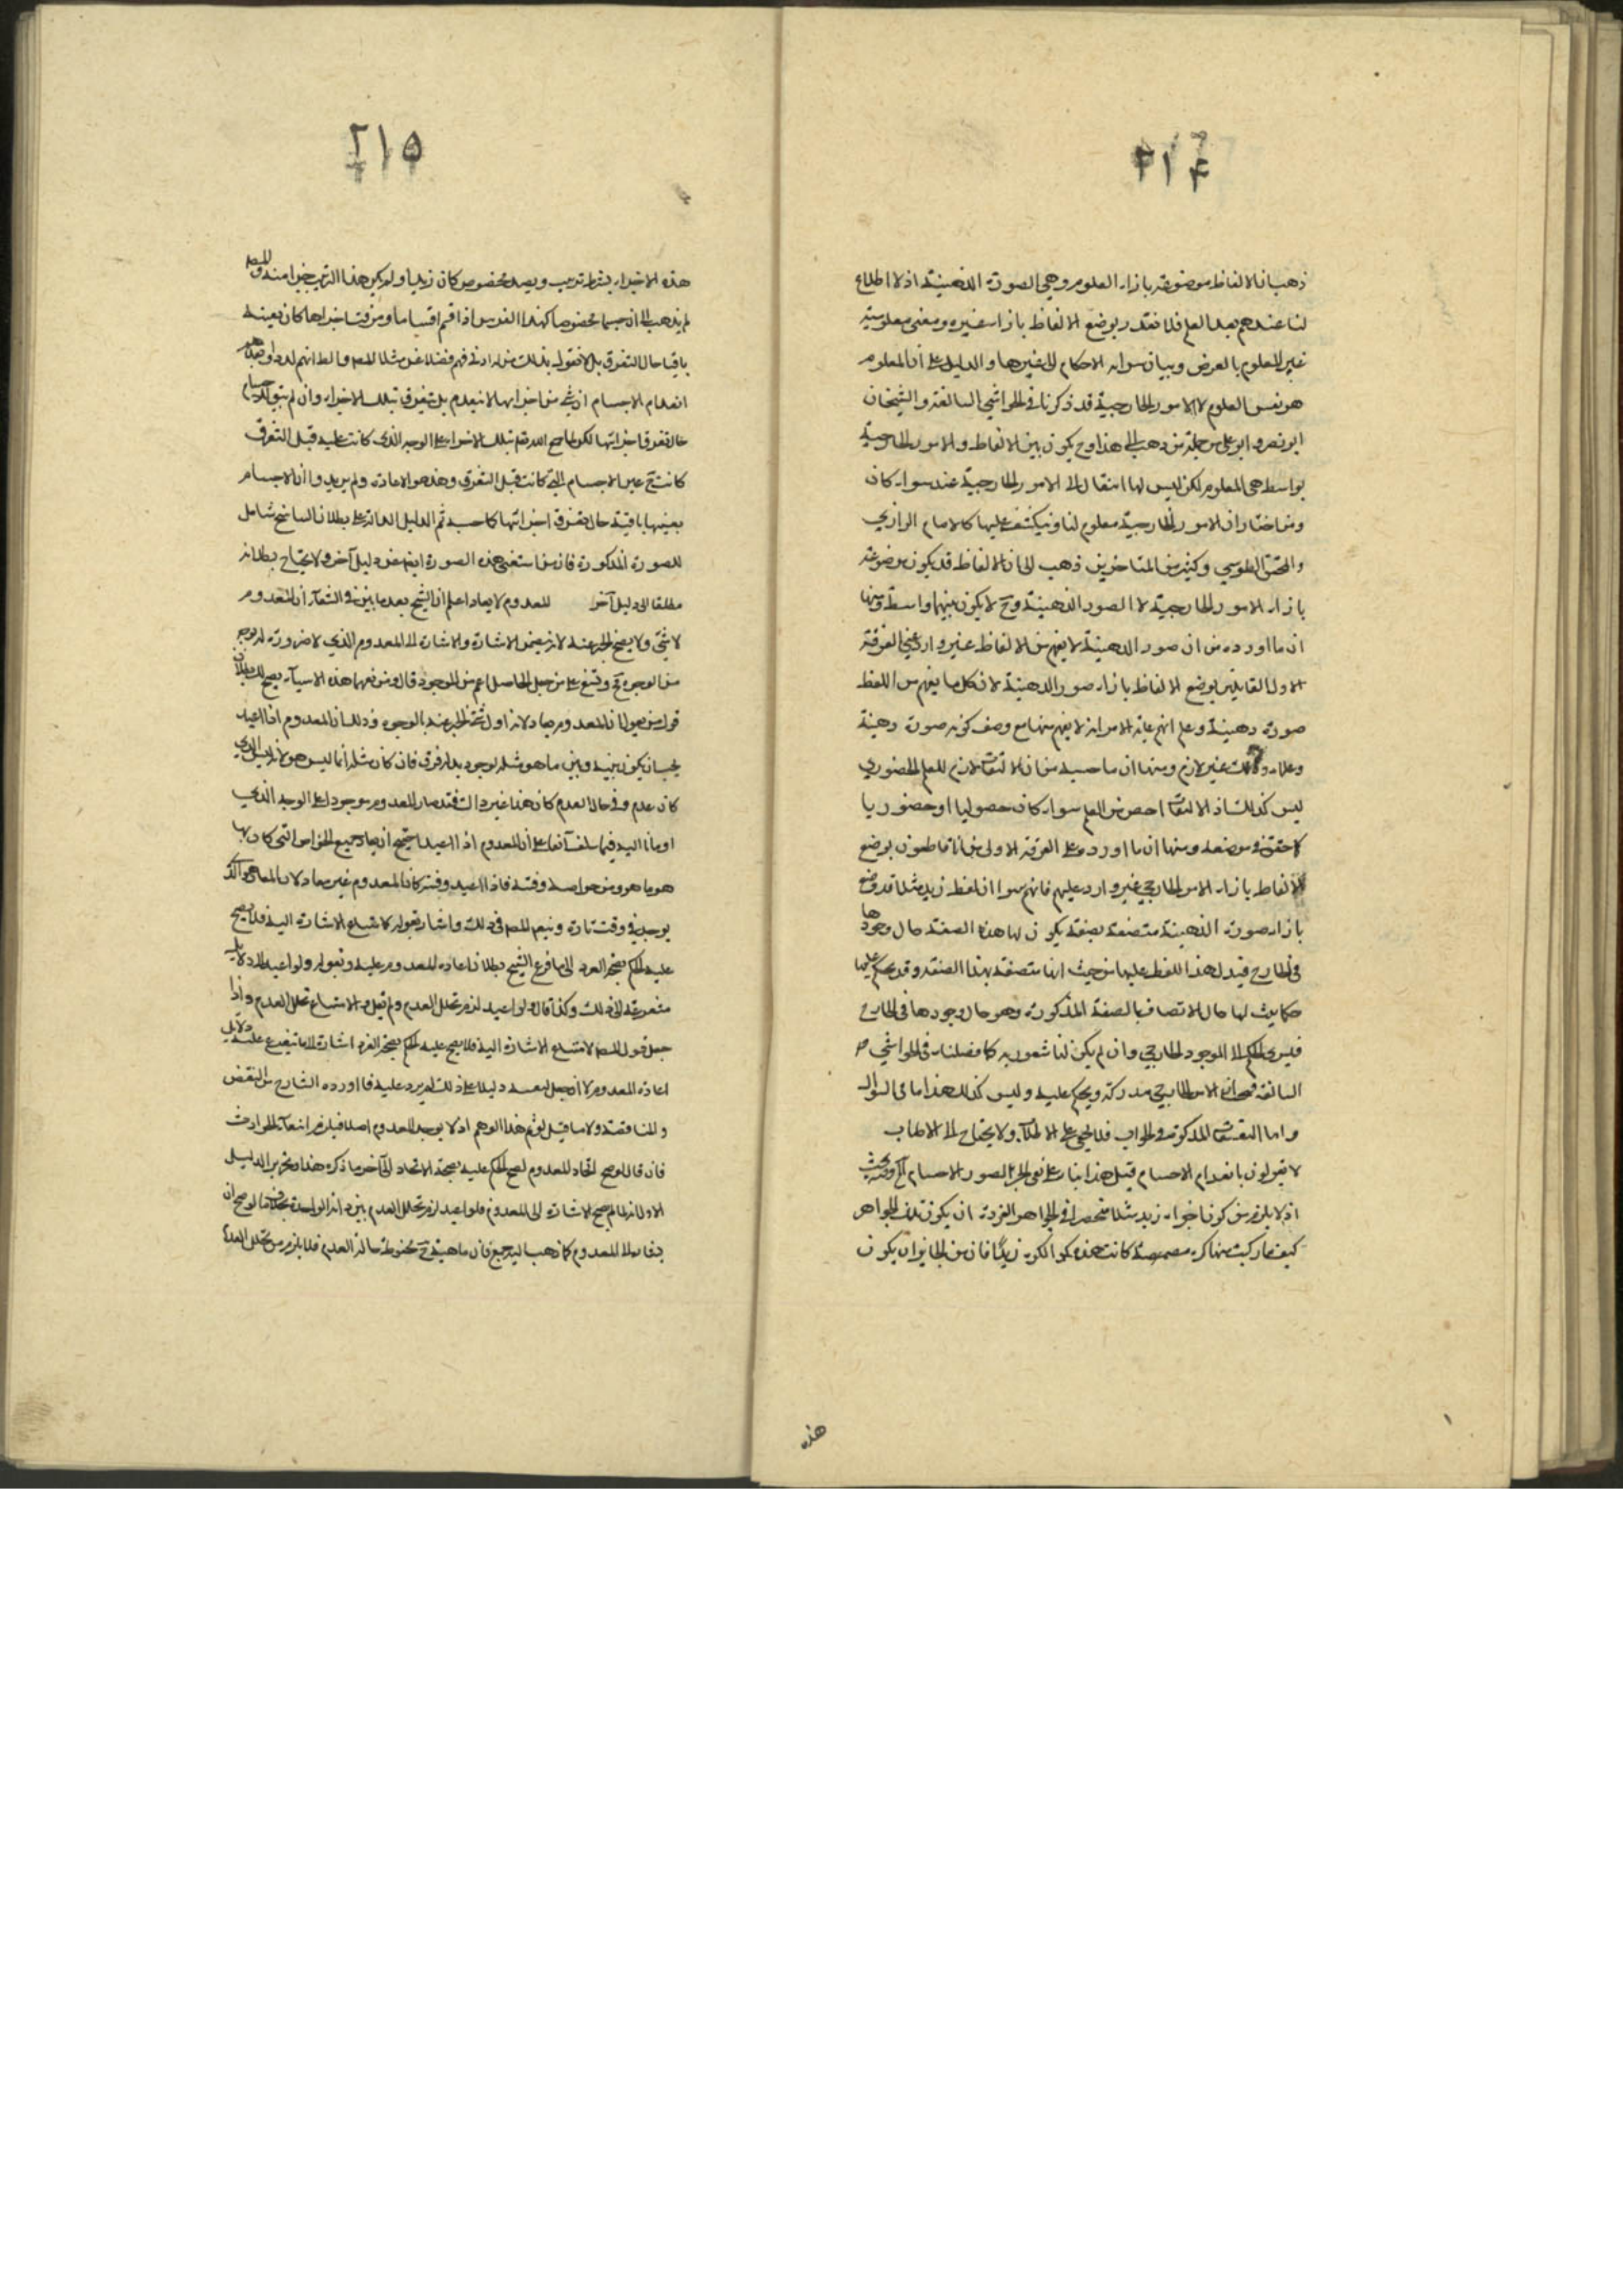 ٢١٤
ذهب ان الالفاظ موضوعة بازاء العلوم وهي الصورة الذهنية اذ لا اطلاع
لنا عندهم بعد العلم فلا نقدر بوضع الالفاظ بازاء غيره ومعنى معلومية
غير المعلوم بالعرض وبيان سراية الاحكام الى غيرها والدليل على ان المعلوم
هو نفس العلوم لا الامور الخارجية قد ذكرنا في الحواشي السالفة والشيخان
ابو نصر وابو علي من جملة من ذهب الى هذا وح يكون بين الالفاظ والامور الخارجية
بواسطة هي المعلوم لكن ليس لها انتقال الى الامور الخارجية عنده سواء كان
ومن اختار ان الامور الخارجية معلوم لنا وينكشف عليها كالامام الرازي
والمحقق الطوسي وكثير من المتاخرين ذهب الى ان الالفاظ قد يكون موضوعة
بازاء الامور الخارجية لا الصور الذهنية وح لا يكون بينهما واسطة ومنها
ان ما اورده من ان صور الذهنية لا يفهم من الالفاظ غير وارد على الفرقة
الاول القايلين بوضع الالفاظ بازاء صور الذهنية لان كل ما يفهم من اللفظ
صورة ذهنية وعلم انهم غاية الامر انه لا يفهم منها مع وصف كونه صورة ذهنية
وعلما وذلك غير لازم ومنها ان ما حسبه من ان الالتفات لازم للعلم الحضوري
ليس كذلك اذ الالتفات اخص من العلم سواء كان حصوليا او حضوريا
كما حقق في موضعه ومنها ان ما اورده على الفرقة الاولى من انا قاطعون بوضع
الالفاظ بازاء الامر الخارجي غير وارد عليهم فانهم سوا ان لفظ زيد مثلا قد وضع
بازاء صورة الذهنية متصفة بصفة يكون لها هذه الصفة حال وجودها
في الخارج فيدل هذا اللفظ عليها من حيث انها متصفة بهذا الصفة وقد يحكم عليها
حكما يثبت لها حال الاتصاف بالصفة المذكورة وهو حال وجودها في الخارج
فيسرى الحكم الى الموجود الخارجي وان لم يكن لنا شعور به كما فصلناه في الحواشي
السالفة الامر الخارجي مدركة ويحكم عليه وليس كذلك هذا ما في السوال
واما المذكورة في الجواب فلا يخفى على ولا يحتاج الى الاطناب
لا يقولون بانعدام الاجسام قيل هذا بناء على نفي الصور الاجسام وفيه بحث
اذ لا يلزم من كون اجزاء زيد مثلا منحصرا في الجواهر الفردة ان يكون تلك الجواهر
كيف ما ركبت كانت زيدا فان من الجايز ان يكون
هذه
٢١٥
هذه الاجزاء بشرط ترتيب مخصوص كان زيدا ولم يكن هذا الترتيب جزا منه والمصـ
لم يذهب الى ان جسما مخصوصا كهذا الفرس اذا قسم اقساما وفرقت اجزاها كان بعينه
باقيا حال التفرق بل لا تفوه بذلك من له ادنى فهم فضلا عن مثل المصـ
انعدام الاجسام ان شئ من اجزائها لا ينعدم بل يتفرق تلك الاجزاء وان لم يبق الاجسام
حال تفرق اجزائها لكن لما جمع الله تعالى تلك الاجزاء على الوجه الذي كانت عليه قبل التفرق
كانت ح عين الاجسام التي كانت قبل التفرق وهذا هو الاعادة ولم يريدوا ان الاجسام
بعينها باقية حال تفرق اجزائها كما حسبه ثم الدليل الدالة على بطلان التناسخ شامل
للصورة المذكورة فان من استغنى هذه الصورة ايضا عن دليل آخر ولا يحتاج بطلانه
مطلقا الى دليل آخر المعدوم لا يعاد اعلم ان الشيخ بعد ما بين في الشفآء ان المعدوم
لا شئ ولا يصح الخبر عنه لانه يتضمن الاشارة والاشارة الى المعدوم الذي لا ضرورة له بوجه
من الوجوه مح وشنع على من جعل الحاصل اعم من الموجود قال ومن فهم هذه الاشيآء يصح له بطلان
قول من يقول ان المعدوم معاد لانه اول شئ يخبر عنه بالوجود وذلك ان المعدوم اذا اعيد
يجب ان يكون بينه وبين ما هو مثله لو وجد بدله فرق فان كان مثله انما ليس هو لانه ليس الذي
كان عدم وفي حال العدم كان هذا غير ذلك فقد صار المعدوم موجودا على الوجه الذي
اومانا اليه فيما سلف آنفا على ان المعدوم اذا اعيد احتيج ان يعاد جميع الخواص التي كان بها
هو ما هو ومن خواصه وقته فاذا اعيد وقته كان المعدوم غير معاد لان المعاد هو الذي
يوجد في وقت ثان وتبعه المصـ في ذلك واشار بقوله لامتناع الاشارة اليه فلا يصح
عليه الحكم بصحة العود الى ما فرع الشيخ بطلان اعادة المعدوم عليه وبقوله ولو اعيد الى دلايل
متفرعة الى ذلك وكذا قال ولو اعيد لزم تخلل العدم ولم يقل ولامتناع تخلل العدم واذا
جعل قول المصـ لامتناع الاشارة اليه فلا يصح عليه الحكم بصحة العود اشارة الى ما يتفرع عليه دلايل
اعادة المعدوم لا ان جعل نفسه دليلا على ذلك لم يرد عليه ما اورده الشارح من النقض
والمناقضة ولا ما قيل لو تم هذا الوهم اذ لا يوجد المعدوم اصلا فيلزم انتفآء الحوادث
فان قال لو صح اتحاد المعدوم لصح الحكم عليه بصحة الاتحاد الى آخر ما ذكره هذا وتحرير الدليل
الاول انه لما لم يصح الاشارة الى المعدوم فلو اعيد لزم تخلل العدم بين ذاته الواحدة بخلاف ما لو صح ان
يقال المعدوم كما ذهب اليه جمع فان ماهيته ح محفوظة حالة العدم فلا يلزم من تخلل العدم